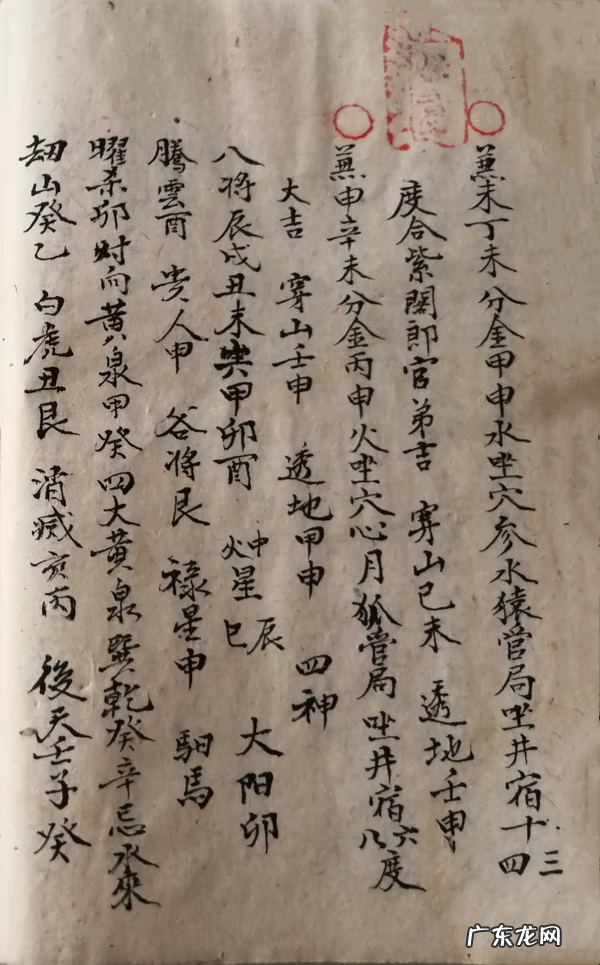 ○兼未丁未分金甲申水坐穴參水猿管局坐井宿十四三
度合紫閣郎官第吉 穿山已未 透地壬申
○兼申辛未分金丙申火坐穴心月狐管局坐井宿六八度
大吉 穿山壬申 透地甲申 四神
八将辰戌丑未寅甲卯酉 火星中巳辰 大阳卯
騰雲酉 贵人申 谷将艮 禄星申 馹馬
曜杀卯 对向黄泉甲癸四大黄泉巽乾癸辛忌水來
劫山癸乙 白虎丑艮 消滅亥丙 後天壬子癸
广东龙网